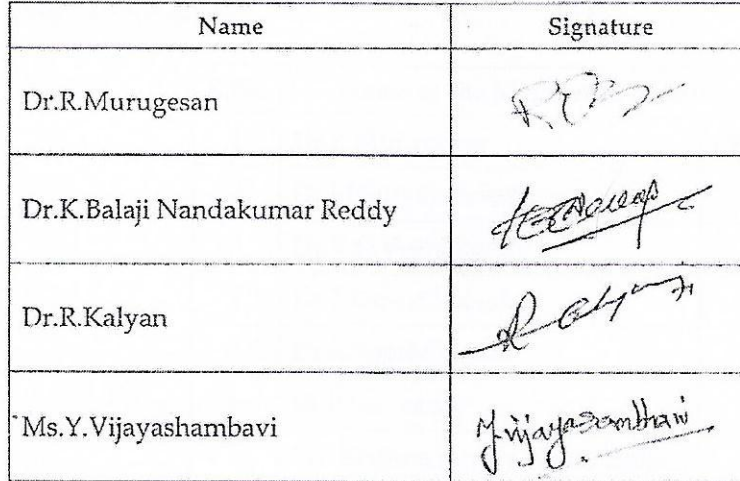 Name Signature
Dr.R.Murugesan
Dr.K.Balaji Nandakumar Reddy
Dr.R.Kalyan
Ms.Y.Vijayashambavi Y.vijayasambavi